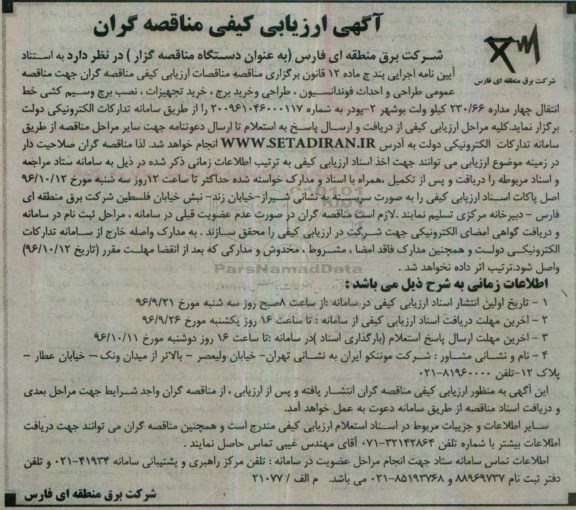 آگهی ارزیابی کیفی مناقصه گران
شرکت برق منطقه ای فارس
شرکت برق منطقه ای فارس (به عنوان دستگاه مناقصه گزار) در نظر دارد به استناد
آیین نامه اجرایی بند ج ماده ۱۲ قانون برگزاری مناقصه مناقصات ارزیابی کیفی مناقصه گران جهت مناقصه
عمومی طراحی و احداث فونداسیون ، طراحی وخرید برج ، خرید تجهیزات ، نصب برج وسیم کشی خط
انتقال چهار مداره ۲۳۰/۶۶ کیلو ولت بوشهر ۲-پودر به شماره ۳۰۰۹۶۱۰۴۶۰۰۰۱۱۷ را از طریق سامانه تدارکات الکترونیکی دولت
برگزار نماید.کلیه مراحل ارزیابی کیفی از دریافت و ارسال پاسخ به استعلام تا ارسال دعوتنامه جهت سایر مراحل مناقصه از طریق
سامانه تدارکات الکترونیکی دولت به آدرس WWW.SETADIRAN.IR انجام خواهد شد. لذا مناقصه گران صلاحیت دار
در زمینه موضوع ارزیابی می توانند جهت اخذ اسناد ارزیابی کیفی به ترتیب اطلاعات زمانی ذکر شده در ذیل به سامانه ستاد مراجعه
و اسناد مربوطه را دریافت و پس از تکمیل ،همراه با اسناد و مدارک خواسته شده حداکثر تا ساعت ۱۲روز سه شنبه مورخ ۹۶/۱۰/۱۲
اصل پاکات اسناد ارزیابی کیفی را به صورت به نشانی شیراز-خیابان زند- نبش خیابان فلسطین شرکت برق منطقه ای
فارس - دبیرخانه مرکزی تسلیم نمایند .لازم است مناقصه گران در صورت عدم عضویت قبلی در سامانه ، مراحل ثبت نام در سامانه
و دریافت گواهی امضای الکترونیکی جهت شرکت در ارزیابی کیفی را محقق سازند . به مدارک واصله خارج از سامانه تدارکات
الکترونیکی دولت و همچنین مدارک فاقد امضا ، مشروط ، مخدوش و مدارکی که بعد از انقضا مهلت مقرر (تاریخ ۹۶/۱۰/۱۲)
واصل شود،ترتیب اثر داده نخواهد شد .
ParsNamadData
اطلاعات زمانی به شرح ذیل می باشد :
۱ - تاریخ اولین انتشار اسناد ارزیابی کیفی در سامانه :از ساعت ۸صبح روز سه شنبه مورخ ۹۶/۹/۲۱
۲ - آخرین مهلت دریافت اسناد ارزیابی کیفی از سامانه : تا ساعت ۱۶ روز یکشنبه مورخ ۹۶/۹/۲۶
۳ - آخرین مهلت ارسال پاسخ استعلام (بارگذاری اسناد )در سامانه :تا ساعت ۱۶ روز دوشنبه مورخ ۹۶/۱۰/۱۱
۴ - نام و نشانی مشاور : شرکت موننکو ایران به نشانی تهران- خیابان ولیعصر - بالاتر از میدان ونک- خیابان عطار -
پلاک ۱۲-تلفن ۸۱۹۶۰۰۰۰-۰۲۱
این آگهی به منظور ارزیابی کیفی مناقصه گران انتشار یافته و پس از ارزیابی ، از مناقصه گران واجد شرایط جهت مراحل بعدی
و دریافت اسناد مناقصه از طریق سامانه دعوت به عمل خواهد آمد.
سایر اطلاعات و جزییات مربوط در اسناد استعلام ارزیابی کیفی مندرج است و همچنین مناقصه گران می توانند جهت دریافت
اطلاعات بیشتر با شماره تلفن ۳۲۱۴۲۸۶۴-۰۷۱ آقای مهندس غیبی تماس حاصل نمایند .
اطلاعات تماس سامانه ستاد جهت انجام مراحل عضویت در سامانه : تلفن مرکز راهبری و پشتیبانی سامانه ۴۱۹۳۴-۰۲۱ و تلفن
دفتر ثبت نام ۸۸۹۶۹۷۳۷ و ۸۵۱۹۳۷۶۸-۰۲۱ می باشد. م الف / ۲۱۰۷۷
شرکت برق منطقه ای فارس